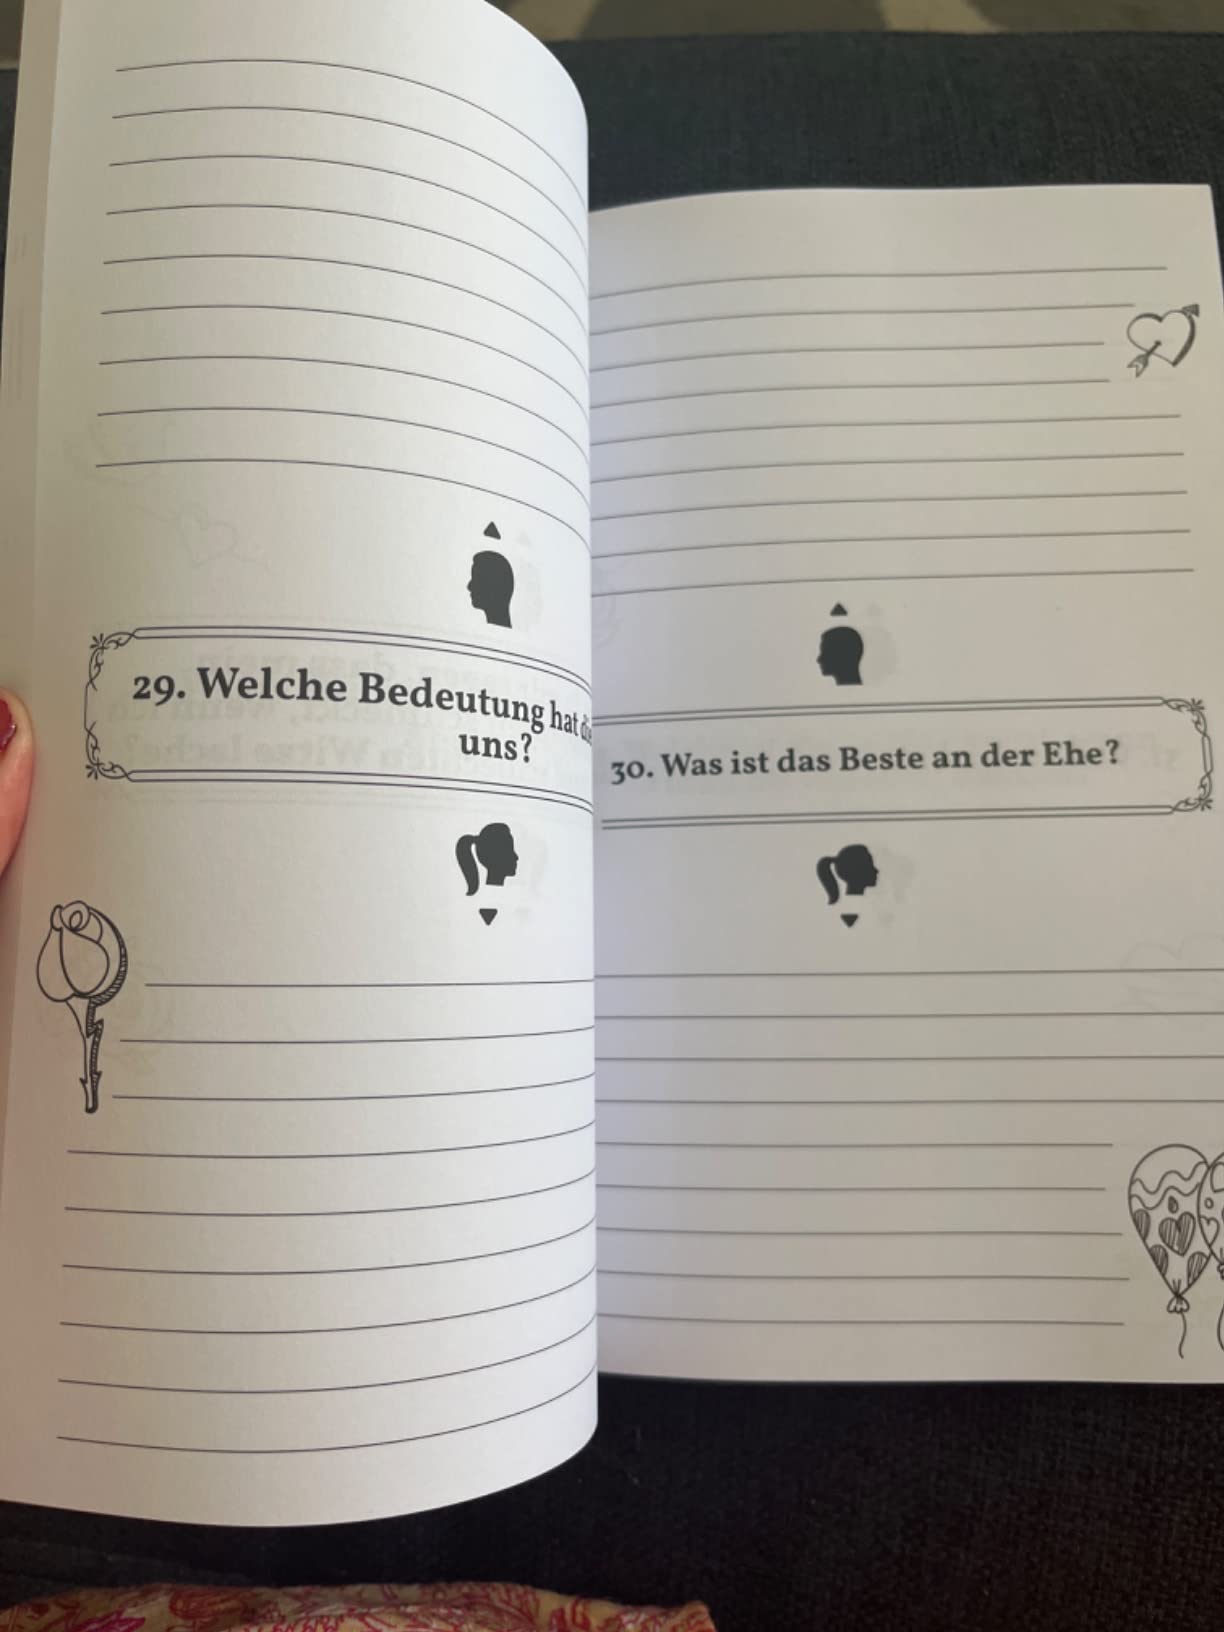 29. Welche Bedeutung hat die
uns?
30. Was ist das Beste an der Ehe?